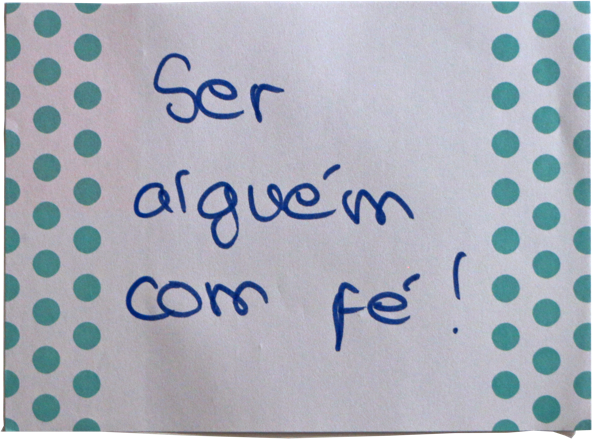 Ser
alguém
com fé!